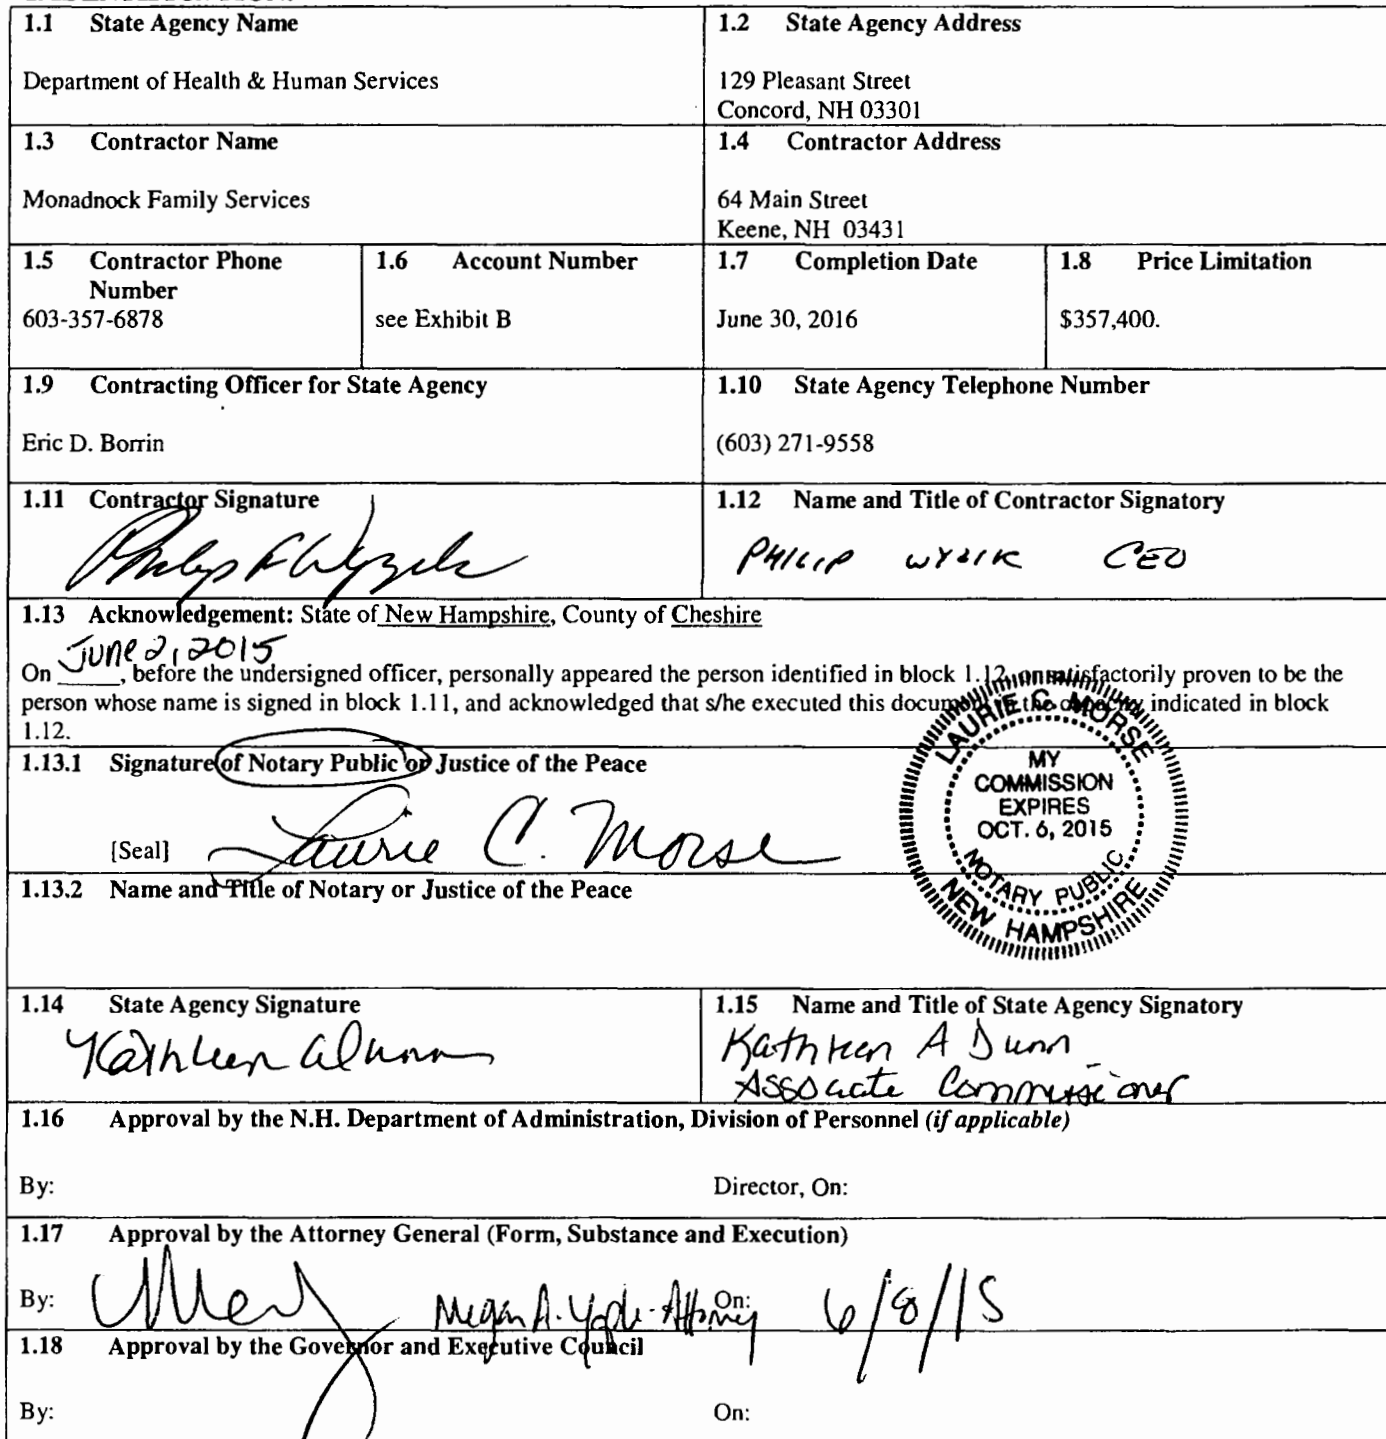 1.1 State Agency Name
Department of Health & Human Services
1.2 State Agency Address
129 Pleasant Street
Concord, NH 03301
1.3 Contractor Name
Monadnock Family Services
1.4 Contractor Address
64 Main Street
Keene, NH 03431
1.5 Contractor Phone
Number
603-357-6878
1.6 Account Number
see Exhibit B
1.7 Completion Date
June 30, 2016
1.8 Price Limitation
$357,400.
1.9 Contracting Officer for State Agency
Eric D. Borrin
1.10 State Agency Telephone Number
(603) 271-9558
1.11 Contractor Signature
Philip F Wyzik
1.12 Name and Title of Contractor Signatory
PHILIP WYZIK CEO
1.13 Acknowledgement: State of New Hampshire, County of Cheshire
June 2, 2015
On , before the undersigned officer, personally appeared the person identified in block 1.12, or satisfactorily proven to be the
person whose name is signed in block 1.11, and acknowledged that s/he executed this document in the capacity indicated in block
1.12.
1.13.1 Signature of Notary Public or Justice of the Peace
[Seal] Laurie C. Morse
LAURIE C. MORSE
MY
COMMISSION
EXPIRES
OCT. 6, 2015
NOTARY PUBLIC
NEW HAMPSHIRE
1.13.2 Name and Title of Notary or Justice of the Peace
1.14 State Agency Signature
Kathleen A Dunn
1.15 Name and Title of State Agency Signatory
Kathleen A Dunn
Associate Commissioner
1.16 Approval by the N.H. Department of Administration, Division of Personnel (if applicable)
By:
Director, On:
1.17 Approval by the Attorney General (Form, Substance and Execution)
By: Megan A. Yaple - Attorney On: 6/8/15
1.18 Approval by the Governor and Executive Council
By:
On: